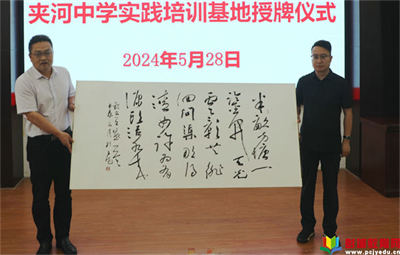 夹河中学实践培训基地授牌仪式
2024年5月28日
半畝方塘一
鑑开天光
雲影共徘
徊问渠那得
清如许为有
源头活水来
www.pcjyedu.cn